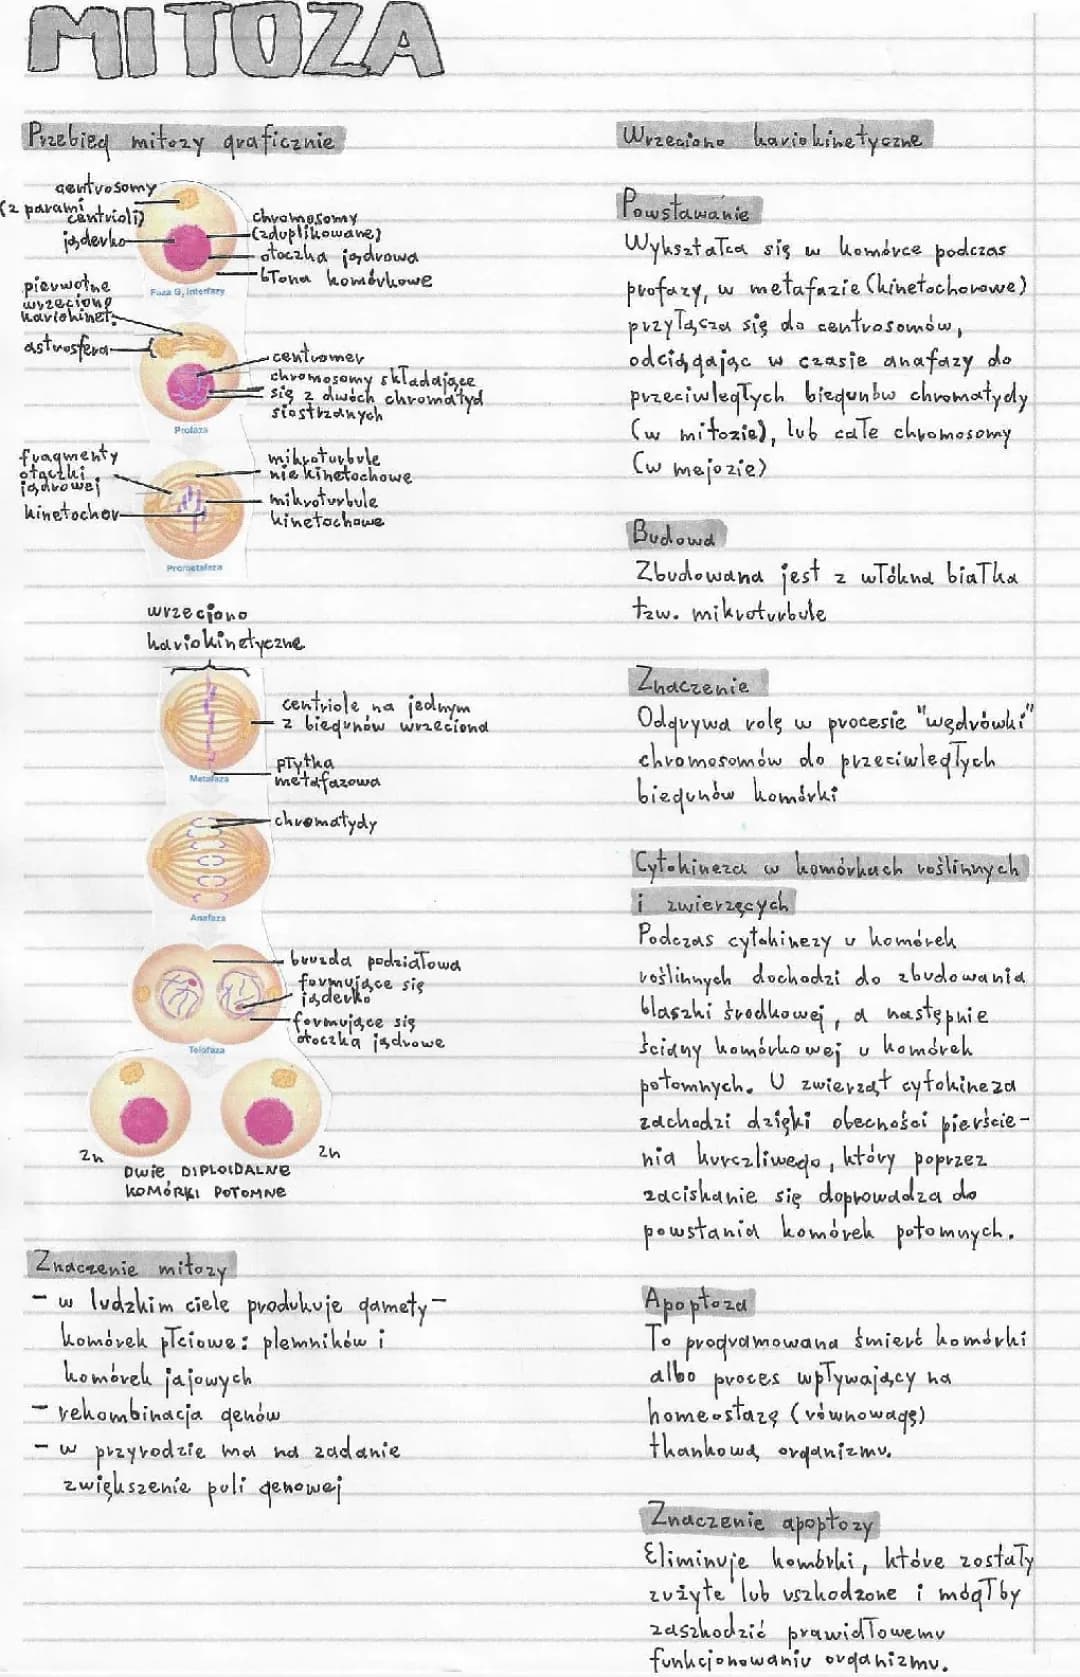 MITOZA
Przebieg mitozy graficznie
centrosomy
(z parami
centrioli)
jąderko
chromosomy
(zduplikowane)
otoczka jądrowa
błona komórkowe
Faza G, Interfazy
pierwotne
wrzeciono
kariokinet.
astrosfera
centromer
chromosomy składające
się z dwóch chromatyd
siostrzanych
Profaza
fragmenty
otoczki
jądrowej
kinetochor
mikroturbule
niekinetochowe
mikroturbule
kinetochowe
Prometafaza
wrzeciono
kariokinetyczne
centriole na jednym
z biegunów wrzeciona
płytka
metafazowa
Metafaza
chromatydy
Anafaza
bruzda podziałowa
formujące się
jąderko
formujące się
otoczka jądrowe
Telofaza
2n
2n
DWIE DIPLOIDALNE
KOMÓRKI POTOMNE
Znaczenie mitozy
- w ludzkim ciele produkuje gamety-
komórek płciowe: plemników i
komórek jajowych
- rekombinacja genów
- w przyrodzie ma na zadanie
zwiększenie puli genowej
Wrzeciono kariokinetyczne
Powstawanie
Wykształca się w komórce podczas
profazy, w metafazie (kinetochorowe)
przyłącza się do centrosomów,
odciągając w czasie anafazy do
przeciwległych biegunów chromatydy
(w mitozie), lub całe chromosomy
(w mejozie)
Budowa
Zbudowana jest z włókna białka
tzw. mikroturbule
Znaczenie
Odgrywa rolę w procesie "wędrówki"
chromosomów do przeciwległych
biegunów komórki
Cytokineza w komórkach roślinnych
i zwierzęcych
Podczas cytokinezy u komórek
roślinnych dochodzi do zbudowania
blaszki środkowej, a następnie
ściany komórkowej u komórek
potomnych. U zwierząt cytokineza
zachodzi dzięki obecności pierście-
nia kurczliwego, który poprzez
zaciskanie się doprowadza do
powstania komórek potomnych.
Apoptoza
To programowana śmierć komórki
albo proces wpływający na
homeostazę (równowagę)
tkankową organizmu.
Znaczenie apoptozy
Eliminuje komórki, które zostały
zużyte lub uszkodzone i mógłby
zaszkodzić prawidłowemu
funkcjonowaniu organizmu.